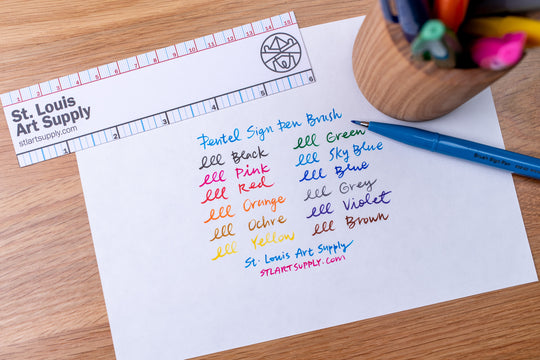 1 2 3 4 5 6 7 8 9 10 11 12 13 14 15
St. Louis
Art Supply
stlartsupply.com
1 2 3 4 5 6
Pentel Sign Pen Brush
lll Black
lll Pink
lll Red
lll Orange
lll Ochre
lll Yellow
lll Green
lll Sky Blue
lll Blue
lll Grey
lll Violet
lll Brown
St. Louis Art Supply
STLARTSUPPLY.com